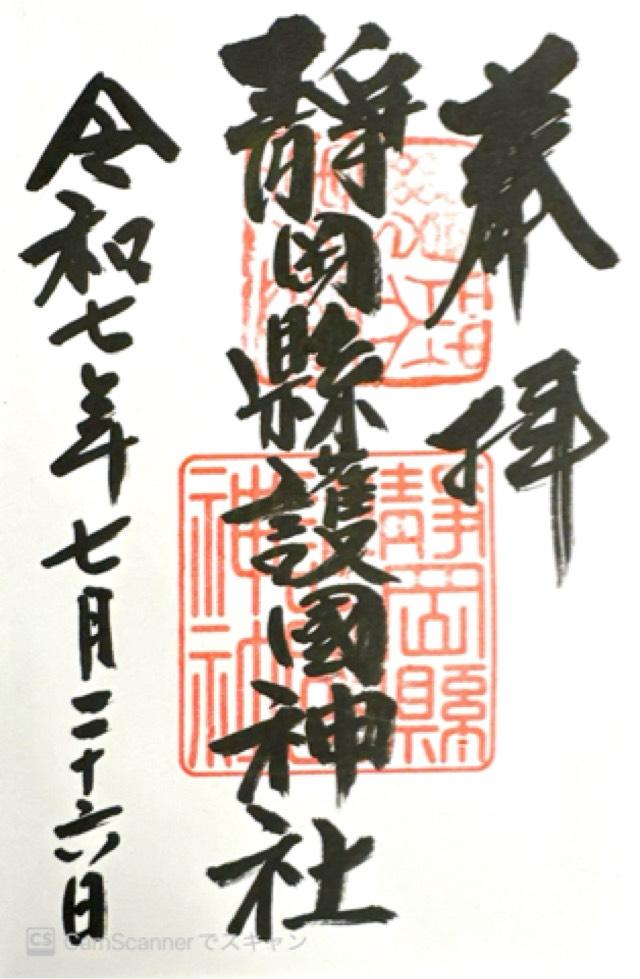 奉拝
靜岡縣護國神社
令和七年七月二十六日
靜岡縣
神社
CS CamScannerでスキャン